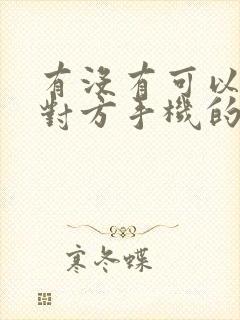 有沒有可以
對方手機的
寒冬蝶